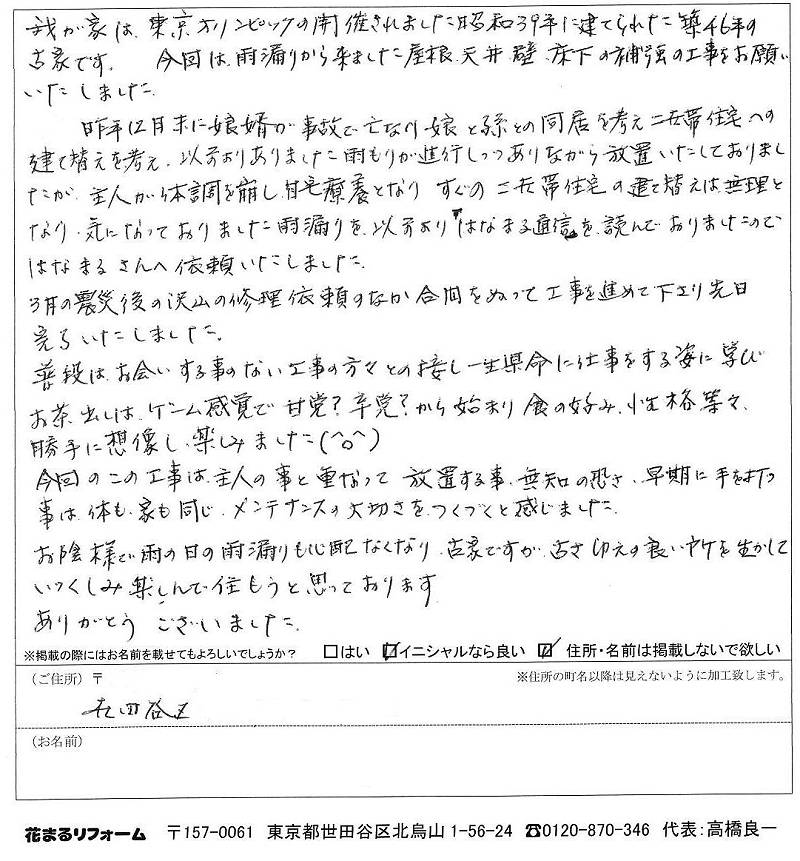 我が家は、東京オリンピックの開催されました昭和39年に建てられた築46年の
古家です。 今回は、雨漏りから来ました屋根、天井、壁、床下の補強の工事をお願い
いたしました。
昨年12月末に娘婿が事故で亡なり娘と孫との同居を考え二世帯住宅への
建て替えを考え、以前よりありました雨もりが進行しつつありながら放置いたしておりまし
たが、主人が体調を崩し自宅療養となり すぐの二世帯住宅の建て替えは無理と
なり、気になっておりました雨漏りを、以前より「はなまる通信」を読んでおりましたので
はなまるさんへ依頼いたしました。
3月の震災後の沢山の修理依頼のなか合間をぬって工事を進めて下さり先日
完了いたしました。
普段はお会いする事のない工事の方々との接し一生県命に仕事をする姿に学び
お茶出しは、ゲーム感覚で甘党?辛党?から始まり食の好み、性格等々、
勝手に想像し、楽しみました(^o^)
今回のこの工事は、主人の事と重なって 放置する事、無知の恐さ、早期に手を打つ
事は、体も、家も同じ、メンテナンスの大切さをつくづくと感じました。
お陰様で雨の日の雨漏りも心配なくなり、古家ですが、古さゆえの良いヤケを生かして
いつくしみ楽しんで住もうと思っております
ありがとう ございました。
※掲載の際にはお名前を載せてもよろしいでしょうか? □はい ☑イニシャルなら良い ☑ 住所・名前は掲載しないで欲しい
(ご住所) 〒 ※住所の町名以降は見えないように加工致します。
世田谷区
(お名前)
花まるリフォーム 〒157-0061 東京都世田谷区北烏山1-56-24 ☎0120-870-346 代表:高橋良一